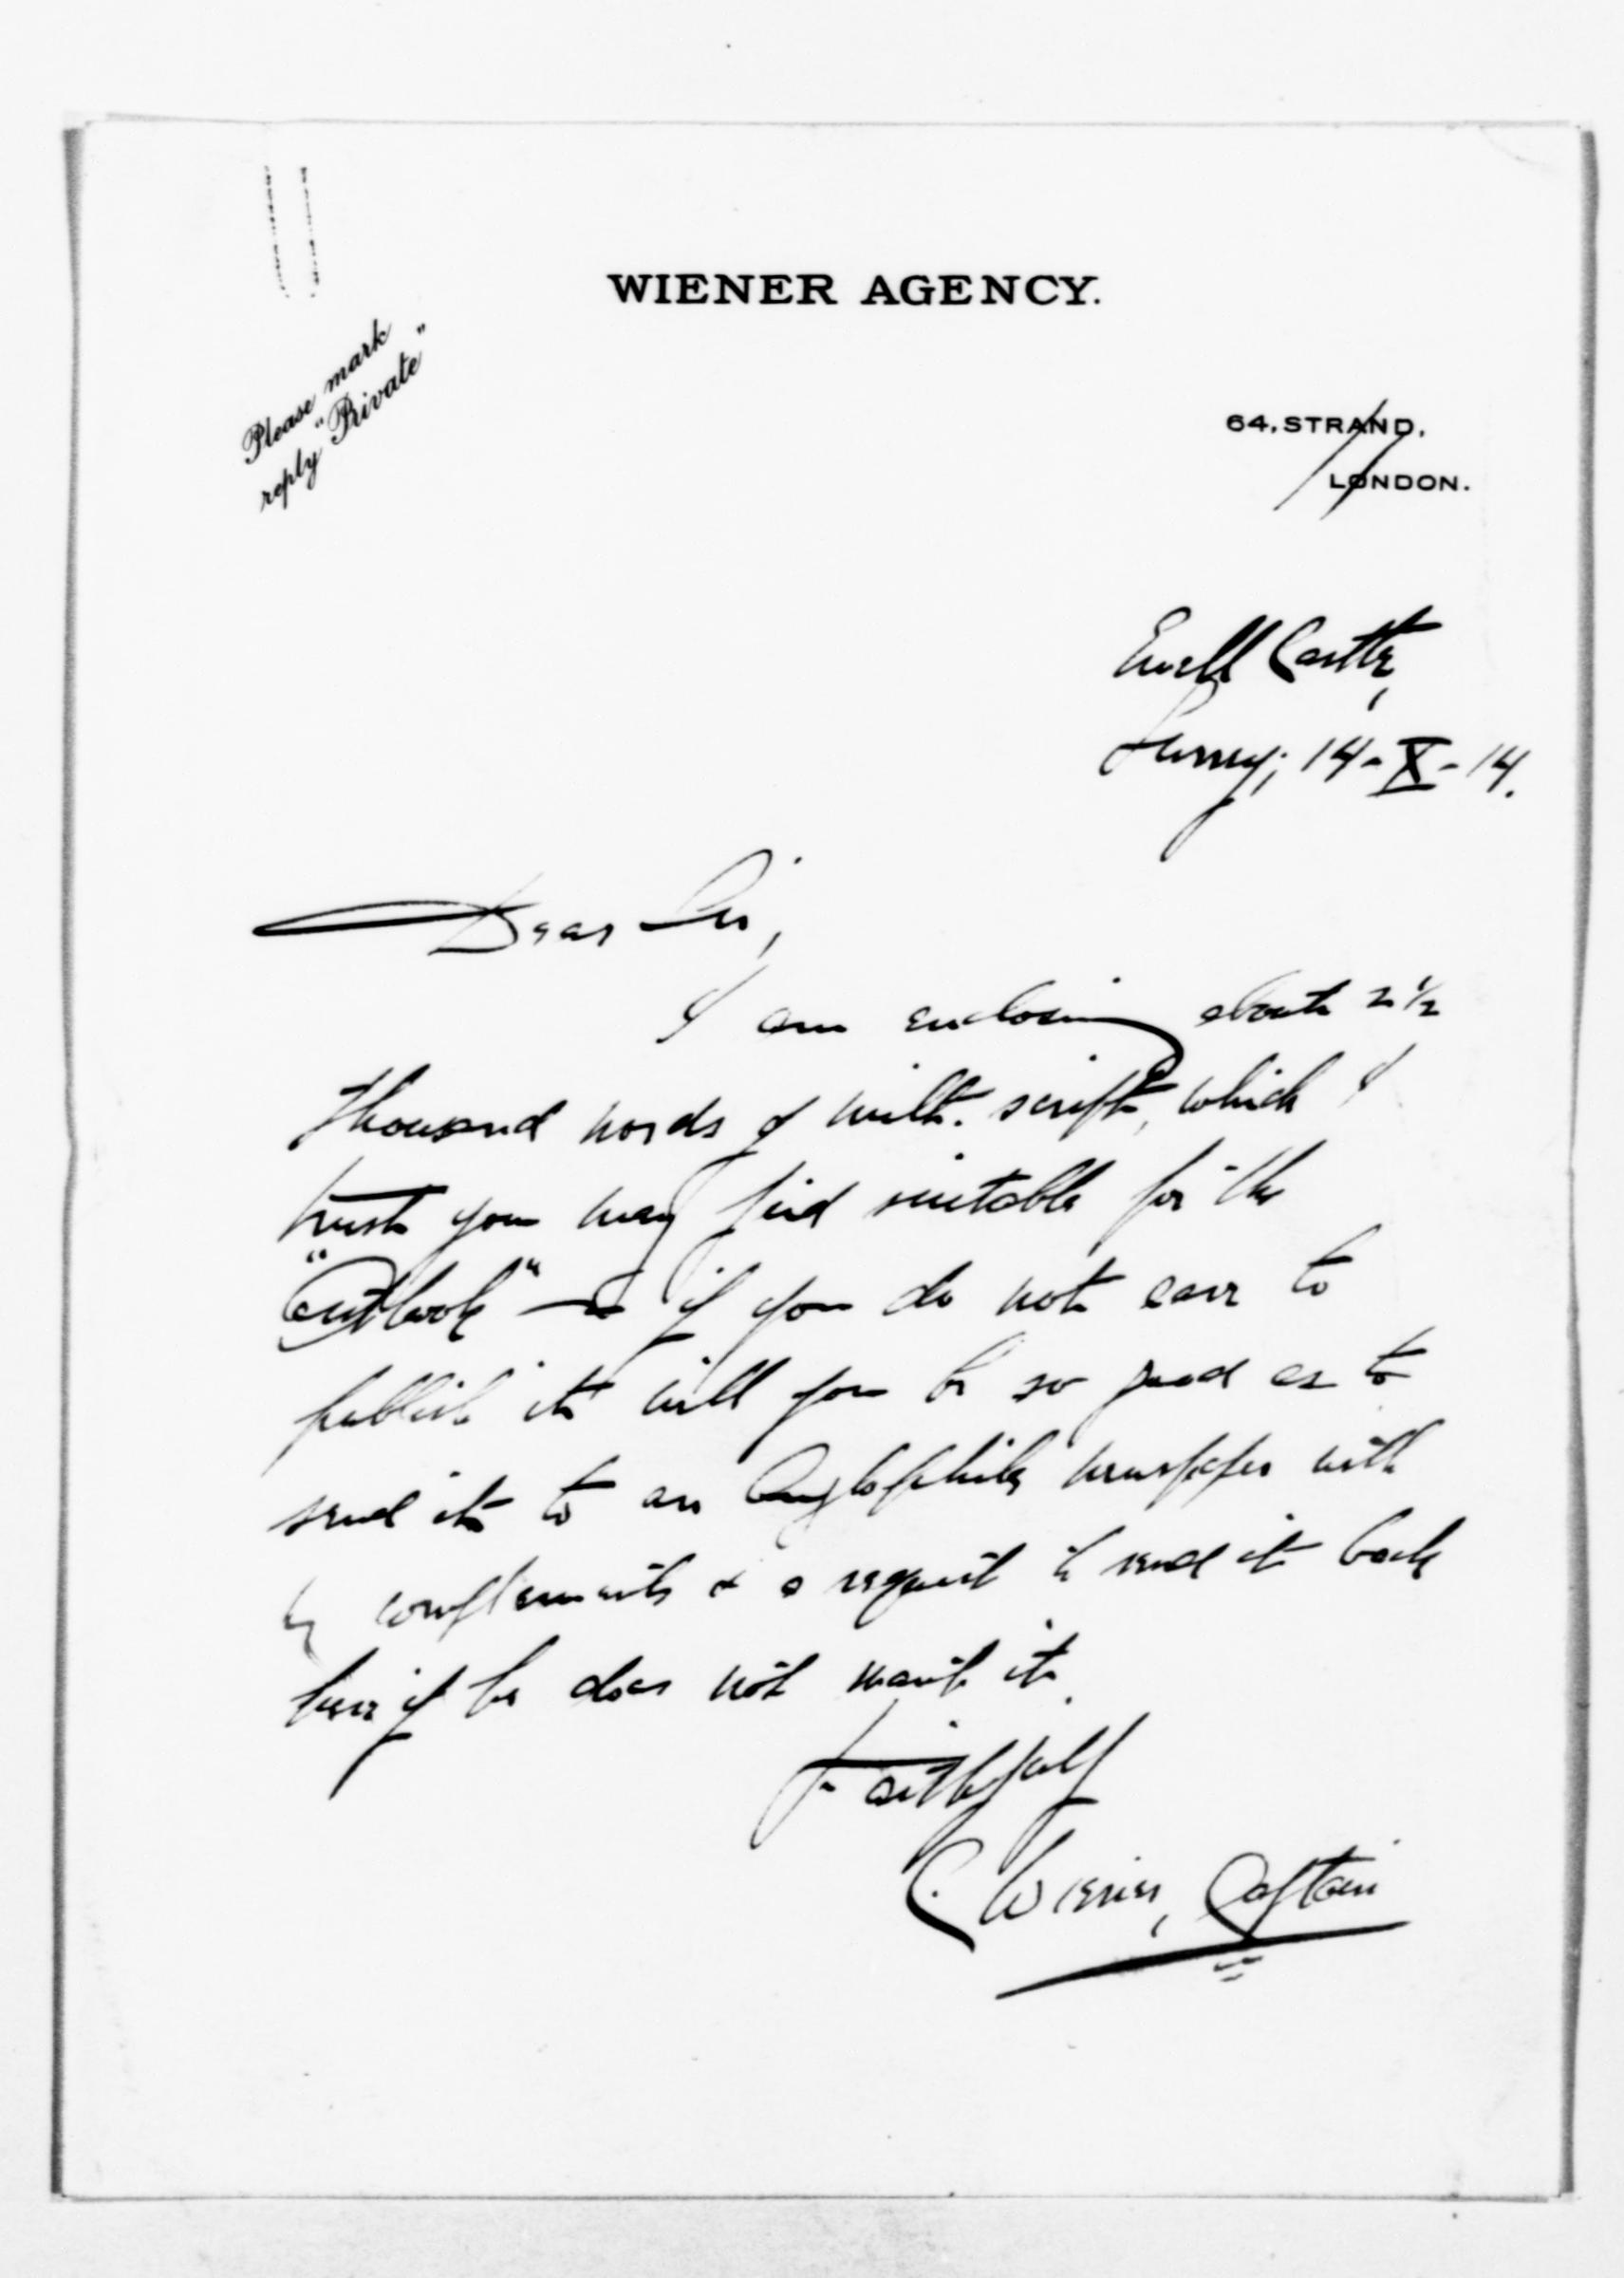 WIENER AGENCY.
Please mark
reply "Private"
64, STRAND,
LONDON.
Ewell Castle,
Surrey; 14-X-14.
Dear Sir,
I am enclosing about 2 1/2
thousand words of milt. script, which I
trust you may find suitable for the
"Outlook" — if you do not care to
publish it will you be so good as to
send it to an Anglophile newspaper with
my compliments & a request to send it back
here if he does not want it.
Faithfully
C. Wiener, Captain